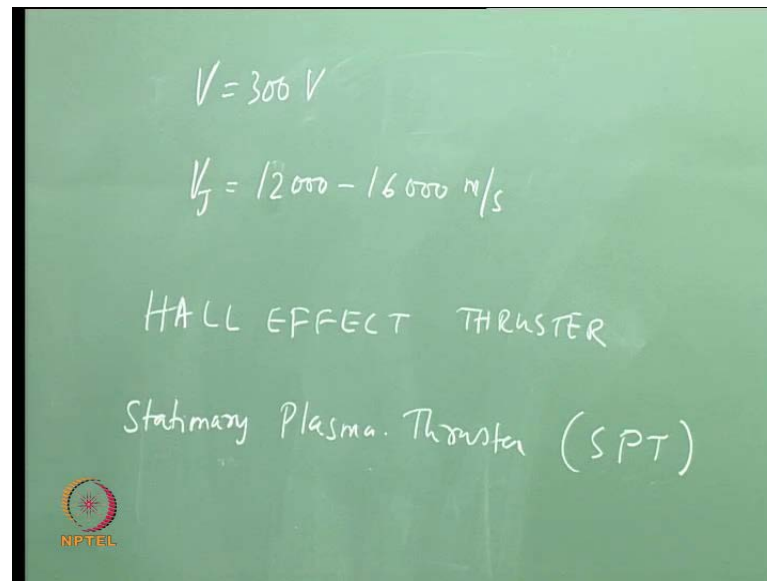 V = 300 V
V_J = 12000 - 16000 m/s
HALL EFFECT THRUSTER
Stationary Plasma. Thruster (SPT)
NPTEL